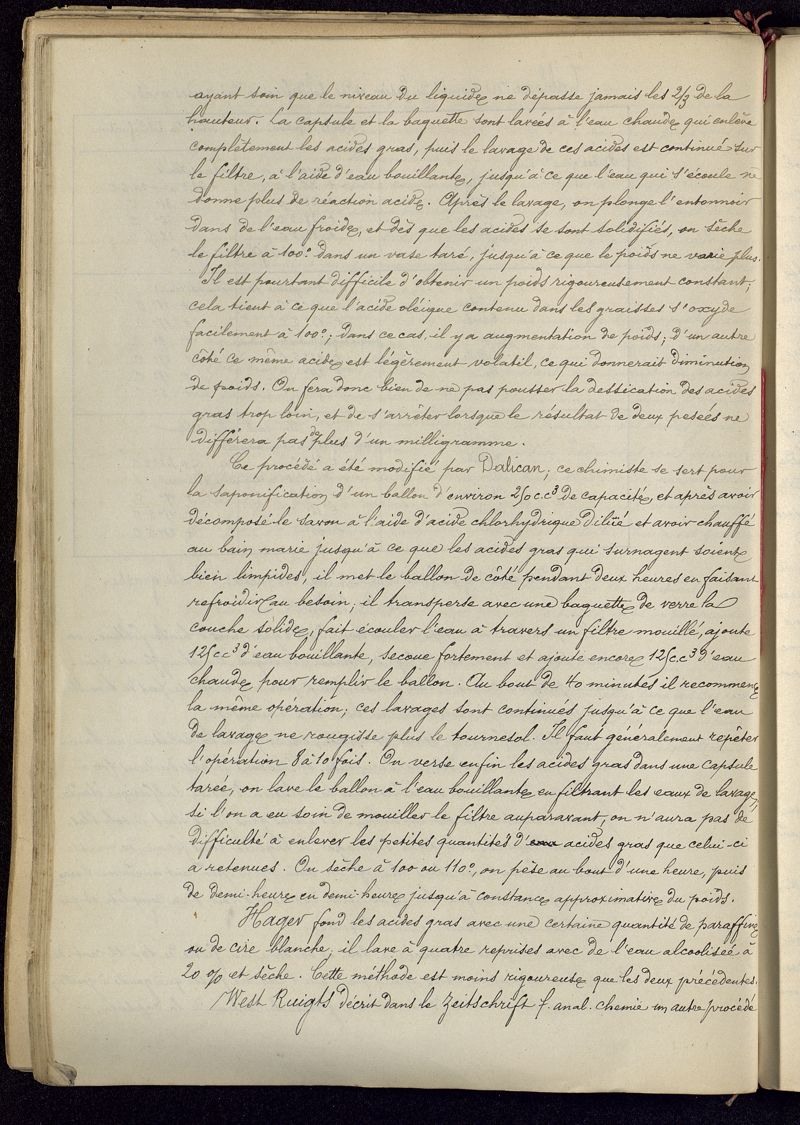 ayant soin que le niveau du liquide ne dépasse jamais les 2/3 de la
hauteur. La capsule et la baguette sont lavées à l'eau chaude qui enlève
complètement les acides gras, puis le lavage de ces acides est continué sur
le filtre, à l'aide d'eau bouillante, jusqu'à ce que l'eau qui s'écoule ne
donne plus de réaction acide. Après le lavage, on plonge l'entonnoir
dans de l'eau froide, et dès que les acides se sont solidifiés, on sèche
le filtre à 100° dans un vase taré, jusqu'à ce que le poids ne varie plus.
Il est pourtant difficile d'obtenir un poids rigoureusement constant;
cela tient à ce que l'acide oléique contenu dans les graisses s'oxyde
facilement à 100°; dans ce cas, il y a augmentation de poids; d'un autre
côté ce même acide est légèrement volatil, ce qui donnerait diminution
de poids. On fera donc bien de ne pas pousser la dessication des acides
gras trop loin, et de s'arrêter lorsque le résultat de deux pesées ne
différera pas de plus d'un milligramme.
Ce procédé a été modifié par Dalican; ce chimiste se sert pour
la saponification d'un ballon d'environ 250 c.c³ de capacité, et après avoir
décomposé le savon à l'aide d'acide chlorhydrique dilué et avoir chauffé
au bain marie jusqu'à ce que les acides gras qui surnagent soient
bien limpides, il met le ballon de côté pendant deux heures en faisant
refroidir au besoin; il transperse avec une baguette de verre la
couche solide, fait écouler l'eau à travers un filtre mouillé, ajoute
125 c.c³ d'eau bouillante, secoue fortement et ajoute encore 125 c.c³ d'eau
chaude pour remplir le ballon. Au bout de 40 minutes il recommence
la même opération; ces lavages sont continués jusqu'à ce que l'eau
de lavage ne rougisse plus le tournesol. Il faut généralement repêter
l'opération 8 à 10 fois. On verse enfin les acides gras dans une capsule
tarée, on lave le ballon à l'eau bouillante en filtrant les eaux de lavage,
si l'on a eu soin de mouiller le filtre auparavant, on n'aura pas de
difficulté à enlever les petites quantités d'eau acides gras que celui-ci
a retenues. On sèche à 100 ou 110°, on pèse au bout d'une heure, puis
de demi-heure en demi-heure jusqu'à constance approximative du poids.
Hager fond les acides gras avec une certaine quantité de paraffine
ou de cire blanche; il lave à quatre reprises avec de l'eau alcoolisée à
20 % et sèche. Cette méthode est moins rigoureuse que les deux précédentes.
West Knigts décrit dans le Zeitschrift f. anal. chemie un autre procédé